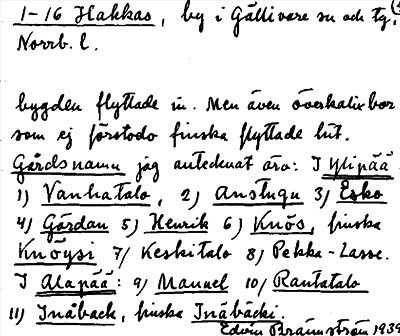 1-16 Hakkas, by i Gällivare sn och tg,
Norrb. l.
bygden flyttade in. Men även överkalixbor
som ej förstodo finska flyttade hit.
Gårdsnamn jag antecknat äro: I Ylipää
1) Vanhatalo, 2) Anstugu 3) Esko
4) Gårdan 5) Henrik 6) Knös, finska
Knöysi 7) Keskitalo 8) Pekka-Lasse.
I Alapää: 9) Manuel 10) Rantatalo
11) Inåback, finska Inäbäcki.
Edvin Brännström 1939